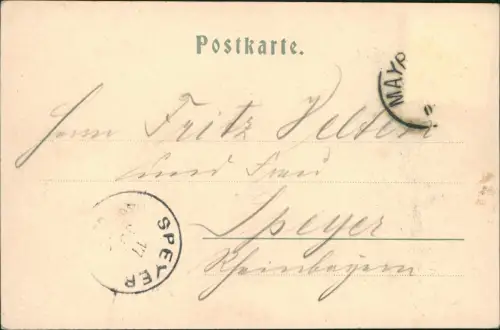 Postkarte.
MAY
Herrn Fritz Velten
und Frau
Speyer
Rheinbayern
SPEYER
17